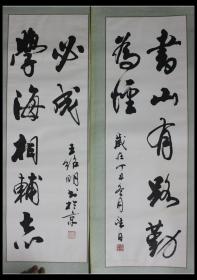 書山有路勤
為徑
歲在丁丑冬月望日
學海相輔志
必成
明書於京